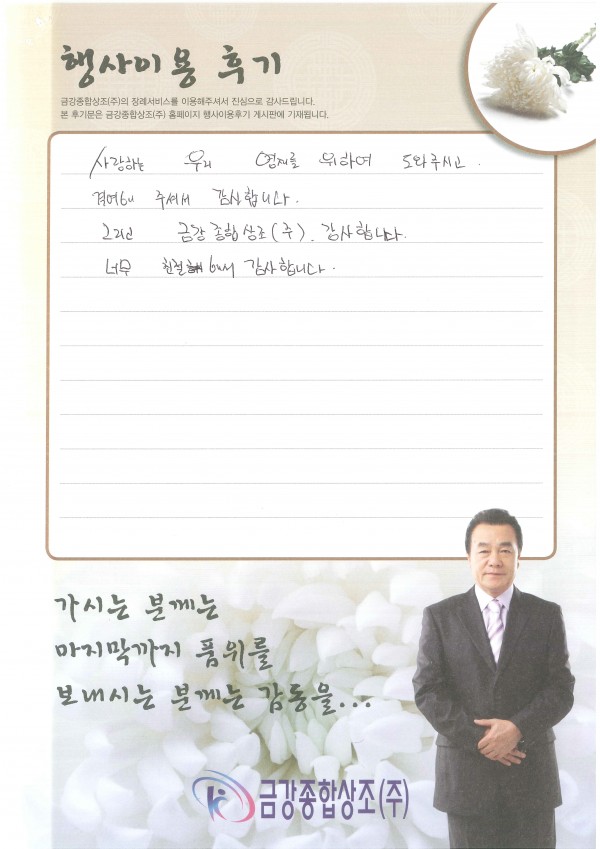 행사이용 후기
금강종합상조(주)의 장례서비스를 이용해주셔서 진심으로 감사드립니다.
본 후기문은 금강종합상조(주) 홈페이지 행사이용후기 게시판에 기재됩니다.
사랑하는 우리 위하여 도와주시고.
주셔서 감사합니다.
그리고 금강종합상조(주). 감사합니다.
너무 감사합니다.
가시는 분께는
마지막까지 품위를
보내시는 분께는 감동을...
금강종합상조(주)